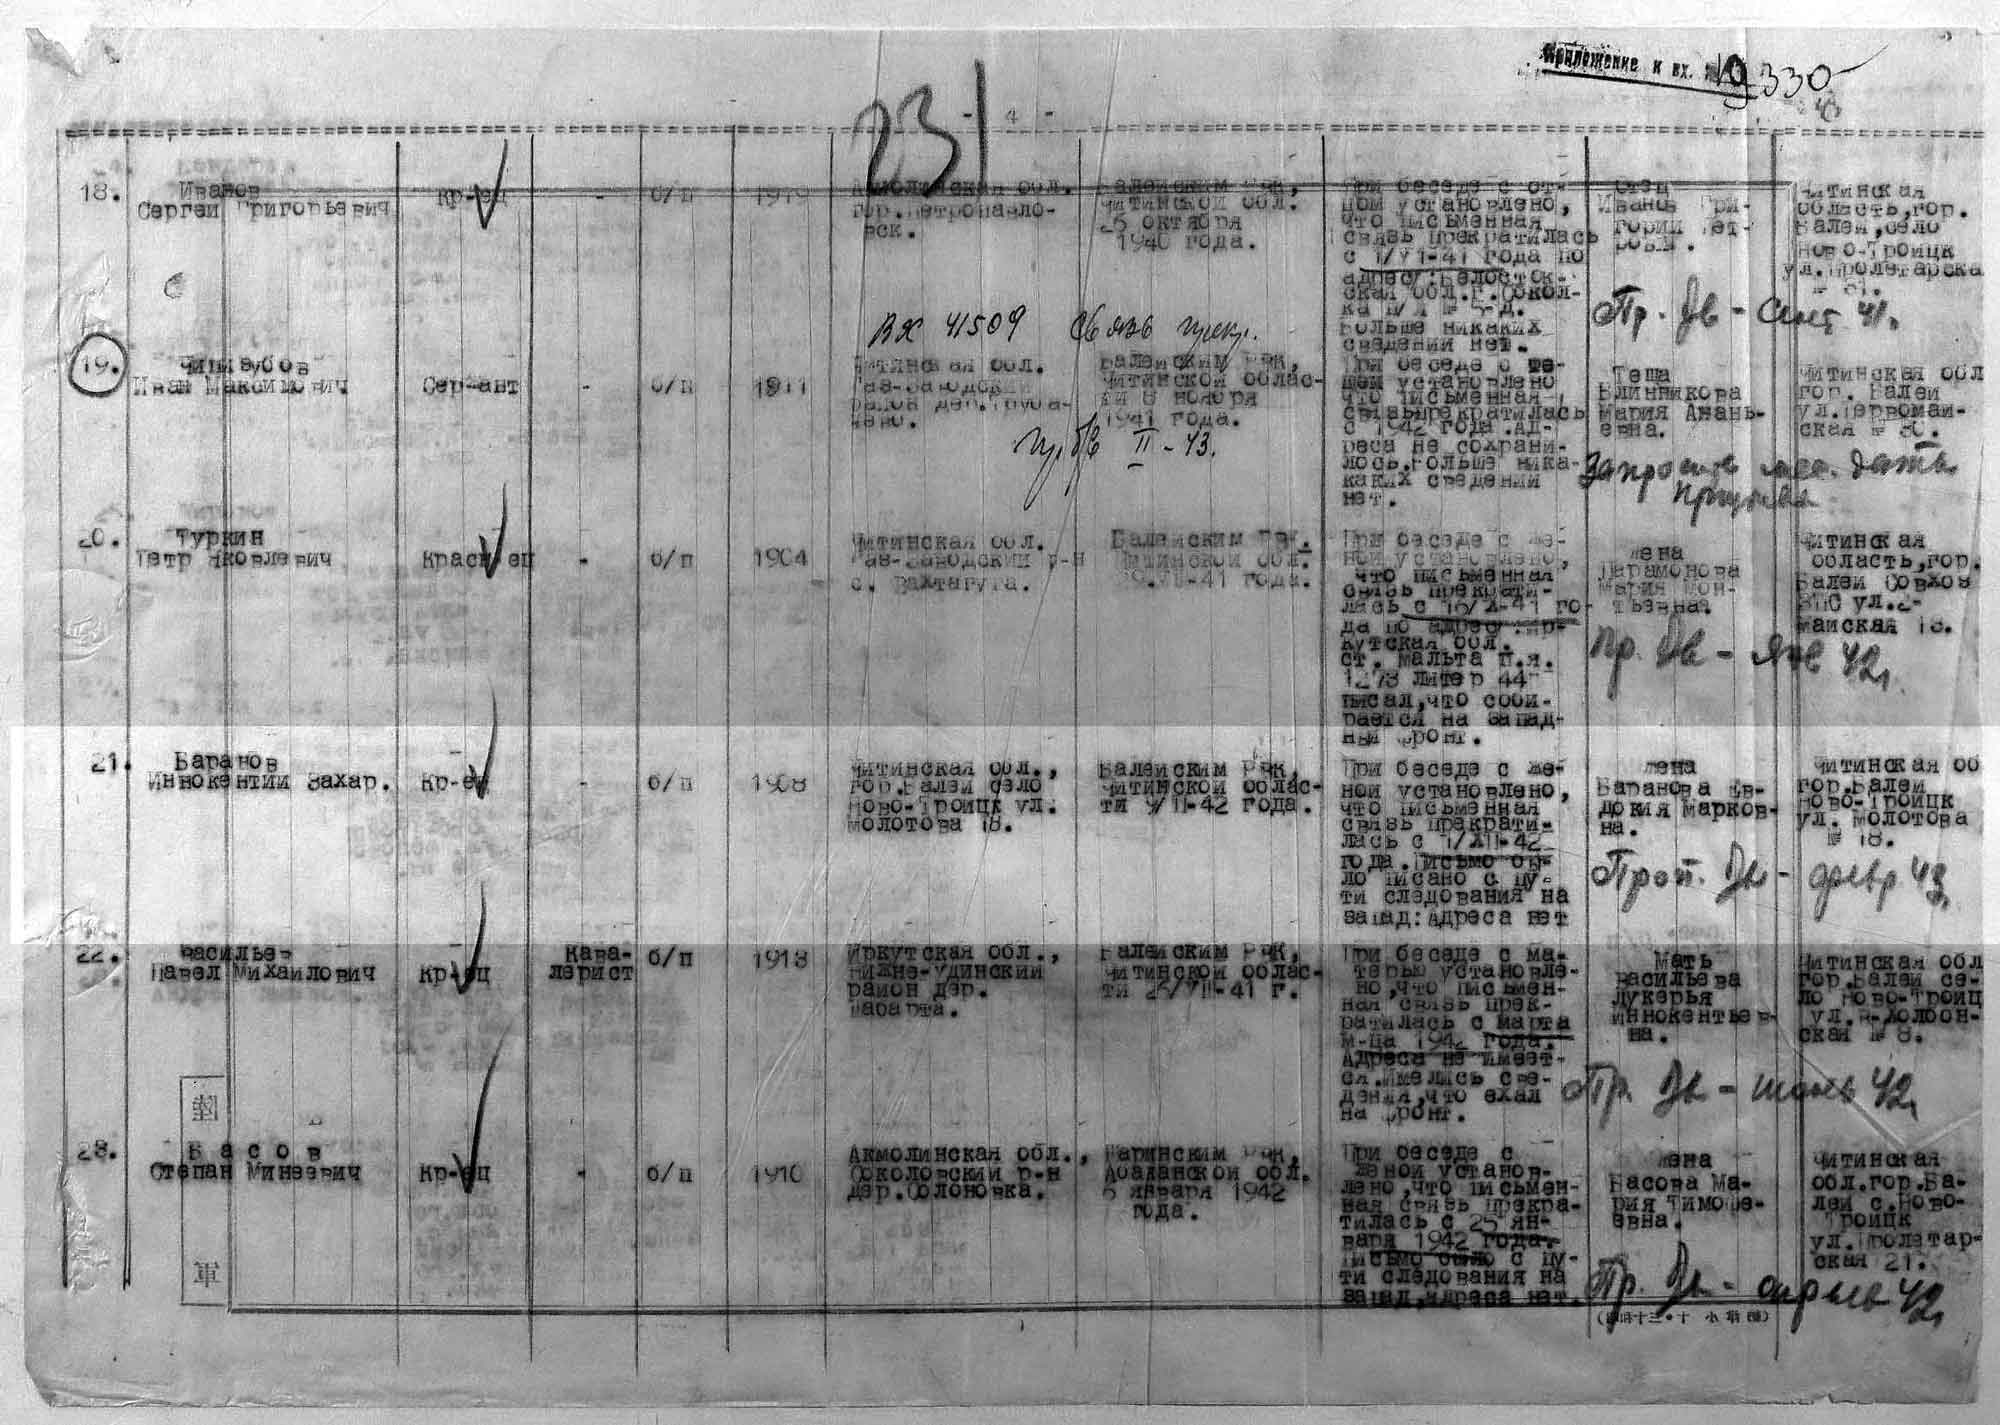 Приложение к вх. № 19330
231
- 4 -
18. Иванов
Сергей Григорьевич
Кр-ец
-
б/п
1919
Акмолинская обл.
гор.Петропавло-
вск.
Балейским РВК,
Читинской обл.
25 октября
1940 года.
При беседе с от-
цом установлено,
что письменная
связь прекратилась
с 1/VI-41 года по
адресу:Белосток-
ская обл.г.Сокол-
ка п/я № 5-д.
Больше никаких
сведений нет.
Отец
Иванов Гри-
горий Пет-
рович.
Пр. Дв - Сент 41.
Читинская
область,гор.
Балей,село
Ново-Троицк
ул.Пролетарска
№ 61.
Вх 41509 Связь прекр.
19. Чипизубов
Иван Максимович
Сержант
-
б/п
1911
Читинская обл.
Газ-Заводский
район дер.Труба-
чево.
Балейским РВК,
Читинской облас-
ти 8 ноября
1941 года.
пр. б/в II - 43.
При беседе с те-
щей установлено
что письменная
связьпрекратилась
с 1942 года.Ад-
реса не сохрани-
лось.Больше ника-
каких сведений
нет.
Теша
Блинникова
Мария Анань-
евна.
Читинская обл
гор. Балей
ул.Первомай-
ская № 30.
дать
призыва
20. Туркин
Петр Яковлевич
Красн-ец
-
б/п
1904
Читинская обл.
Газ-Заводский р-н
с. Бахтагута.
Балейским РВК.
Читинской обл.
-41 года.
При беседе с же-
ной установлено,
что письменная
связь прекрати-
лась с 16/X-41 го-
да по адресу:Ир-
кутская обл.
ст. Мальта п.я.
1273 литер 44
писал,что соби-
рается на запад-
ный фронт.
Жена
Парамонова
Мария Мон-
тьевна.
Пр. Дв - Янв 42г
Читинская
область,гор.
Балей Совхоз
ЗПС ул.2-
Майская 18.
21. Баранов
Иннокентий Захар.
Кр-ец
-
б/п
1908
Читинская обл.,
гор.Балей село
Ново-Троицк ул.
Молотова 18.
Балейским РВК,
Читинской облас-
ти 9/II-42 года.
При беседе с же-
ной установлено,
что письменная
связь прекрати-
лась с 1/XII-42
года.Письмо бы-
ло писано с пу-
ти следования на
запад:Адреса нет
Жена
Баранова Ев-
докия Марков-
на.
Проп. Дв - февр 43.
Читинская об
гор.Балей
Ново-Троицк
ул. Молотова
№ 18.
22. Васильев
Павел Михайлович
Кр-ец
Кава-
лерист
б/п
1918
Иркутская обл.,
Нижне-Удинский
район дер.
Шабарта.
Балейским РВК,
Читинской облас-
ти 25/VII-41 г.
При беседе с ма-
терью установле-
но,что письмен-
ная связь прек-
ратилась с марта
м-ца 1942 года.
Адреса не имеет-
ся.Имелись све-
дения,что ехал
на фронт.
Мать
Васильева
Лукерья
Иннокентьев-
на.
Пр. Дв - июнь 42г
Читинская обл
гор.Балей се-
ло Ново-Троиц
ул.В-Голбон-
ская № 8.
23. Басов
Степан Минеевич
Кр-ец
-
б/п
1910
Акмолинская обл.,
Соколовский р-н
дер.Солоновка.
Таринским РВК,
Абаканской обл.
5 января 1942
года.
При беседе с
женой установ-
лено,что письмен-
ная связь прекра-
тилась с 25 ян-
варя 1942 года.
Письмо было с пу-
ти следования на
запад,адреса нет.
Жена
Басова Ма-
рия Тимофе-
евна.
Пр. Дв - апрель 42г
Читинская
обл.гор.Ба-
лей с.Ново-
Троицк
ул.Пролетар-
ская 21.
陸
軍